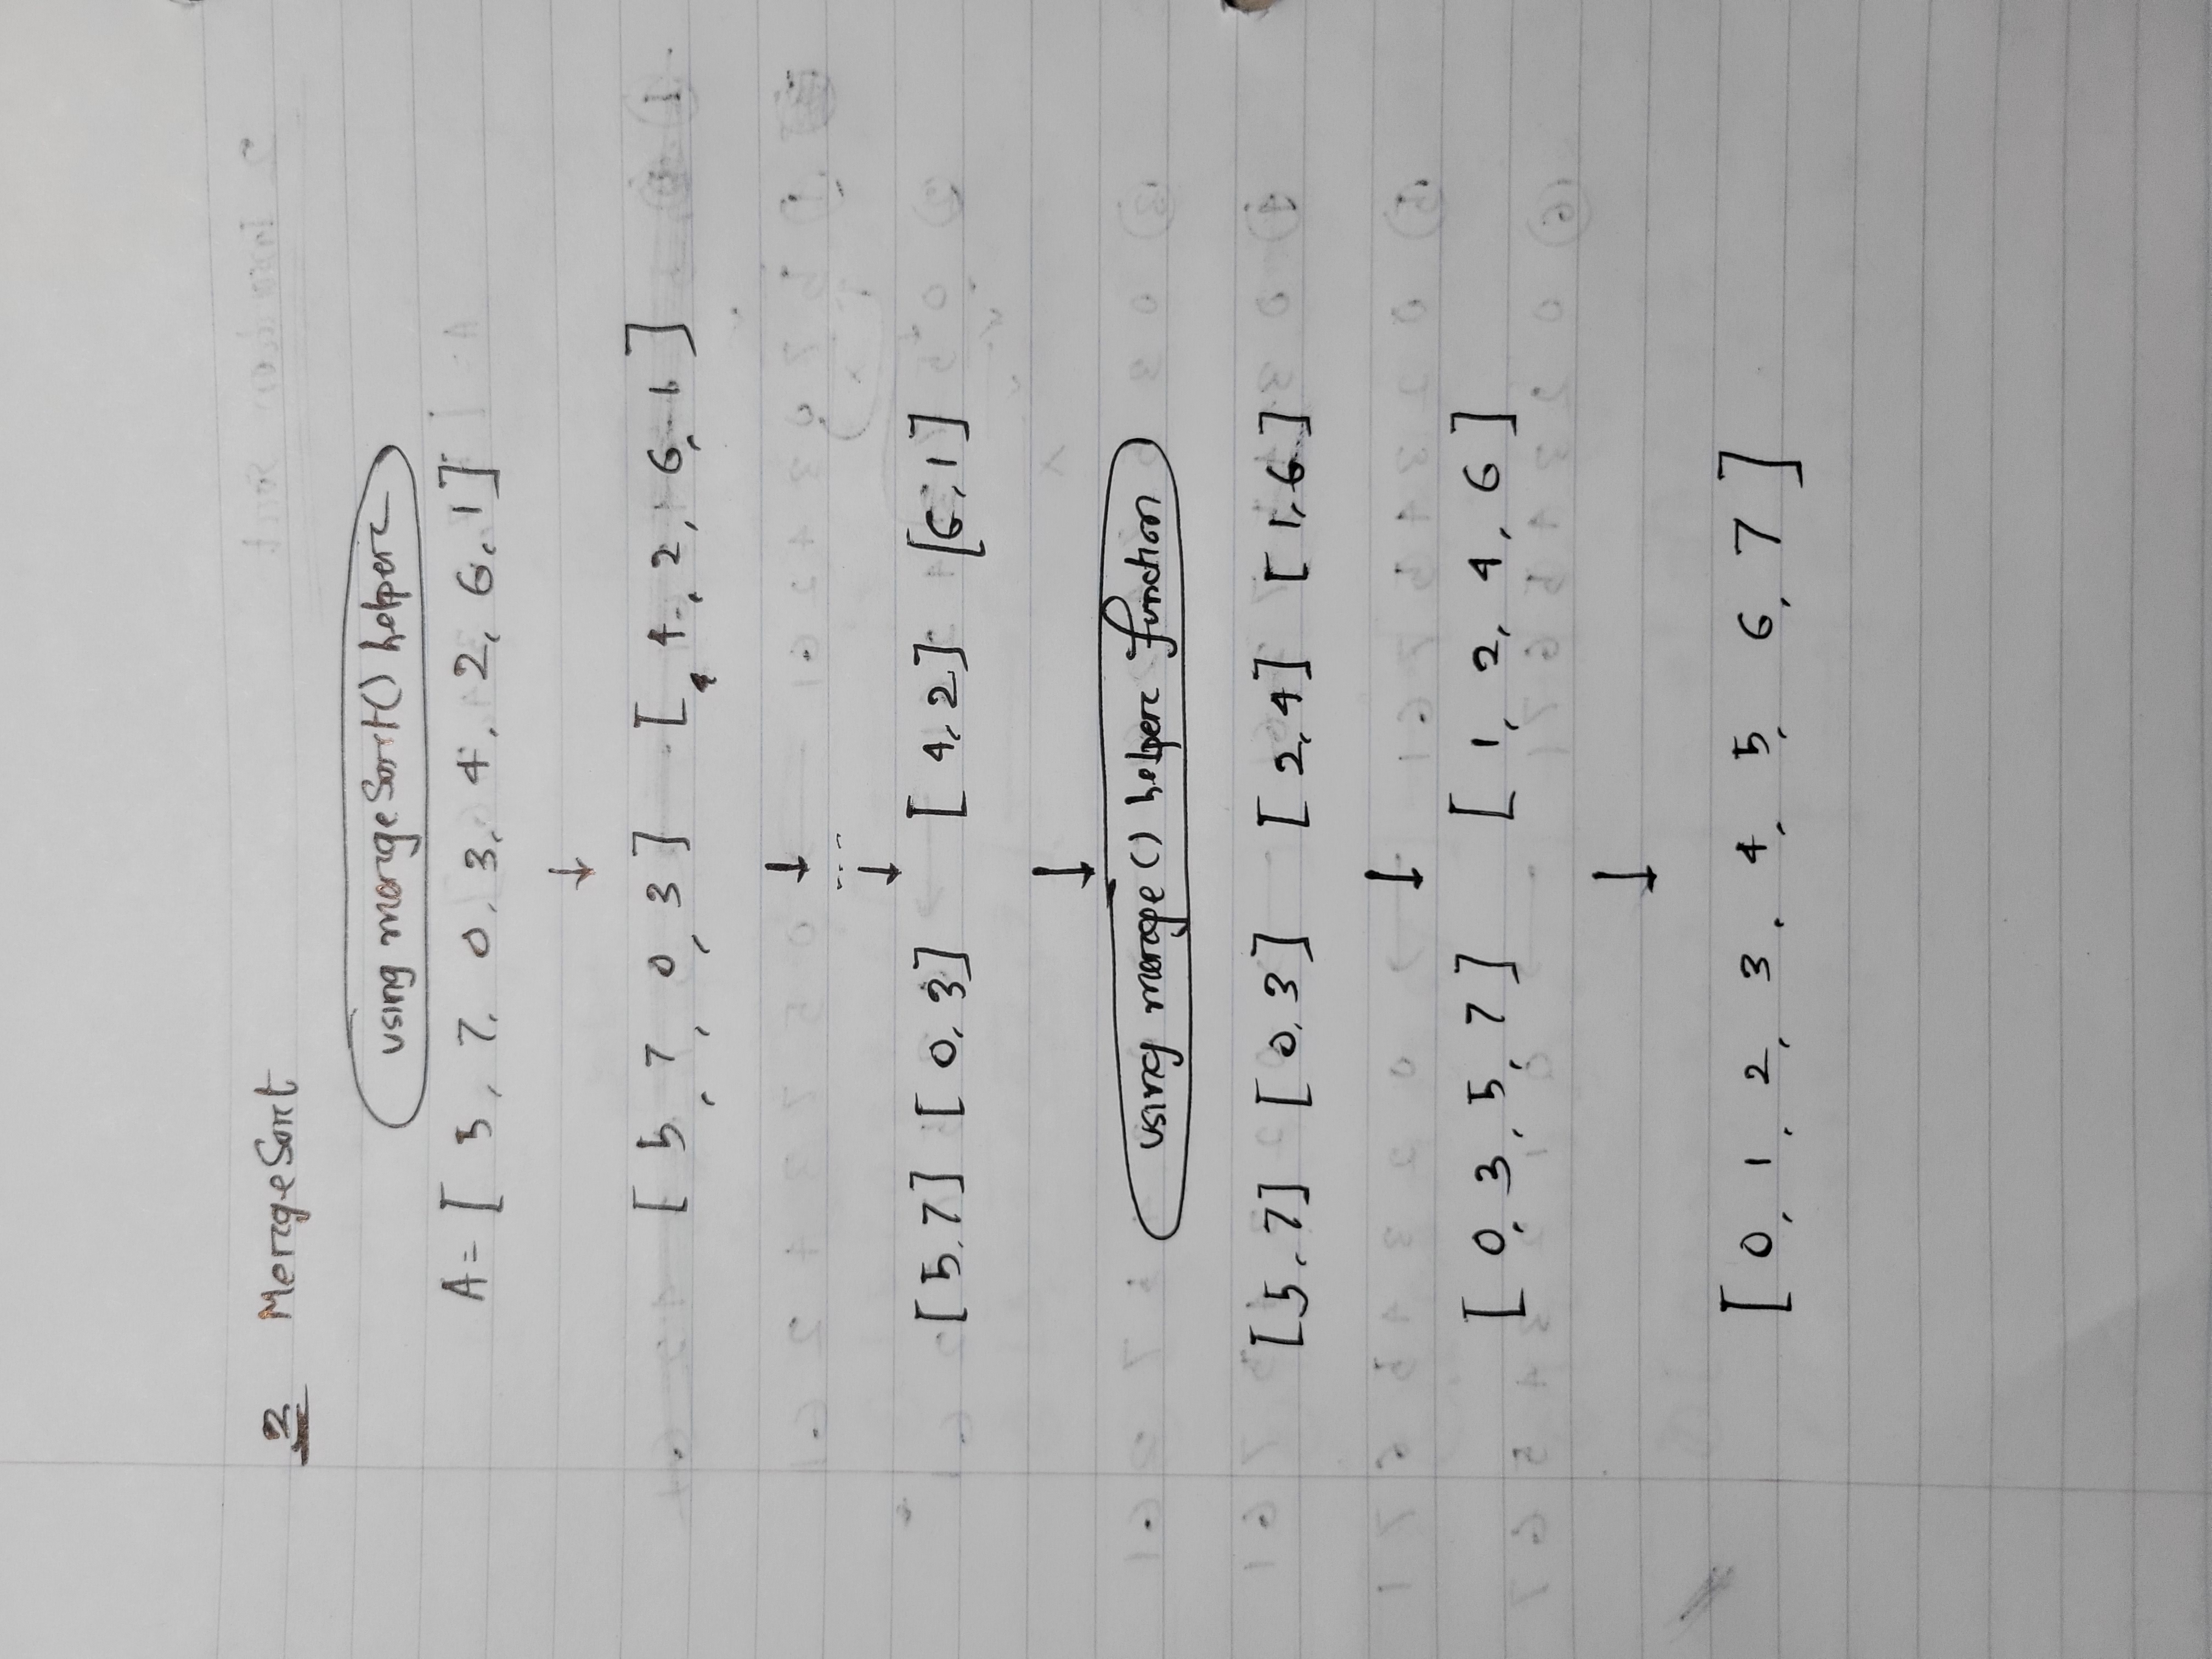 2 MergeSort
using mergeSort() helper
A = [ 5, 7, 0, 3, 4, 2, 6, 1 ]
↓
[ 5, 7, 0, 3 ] [ 4, 2, 6, 1 ]
↓
...
↓
[ 5, 7 ] [ 0, 3 ] [ 4, 2 ] [ 6, 1 ]
↓
using merge() helper function
[ 5, 7 ] [ 0, 3 ] [ 2, 4 ] [ 1, 6 ]
↓
[ 0, 3, 5, 7 ] [ 1, 2, 4, 6 ]
↓
[ 0, 1, 2, 3, 4, 5, 6, 7 ]